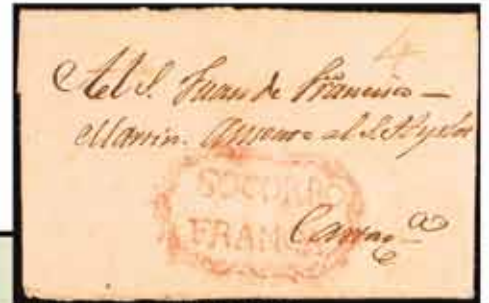 4
Al S. Juan de Francisco
Martin. Ausence al S.
SOCORRO
FRANCA
Cartag.ª